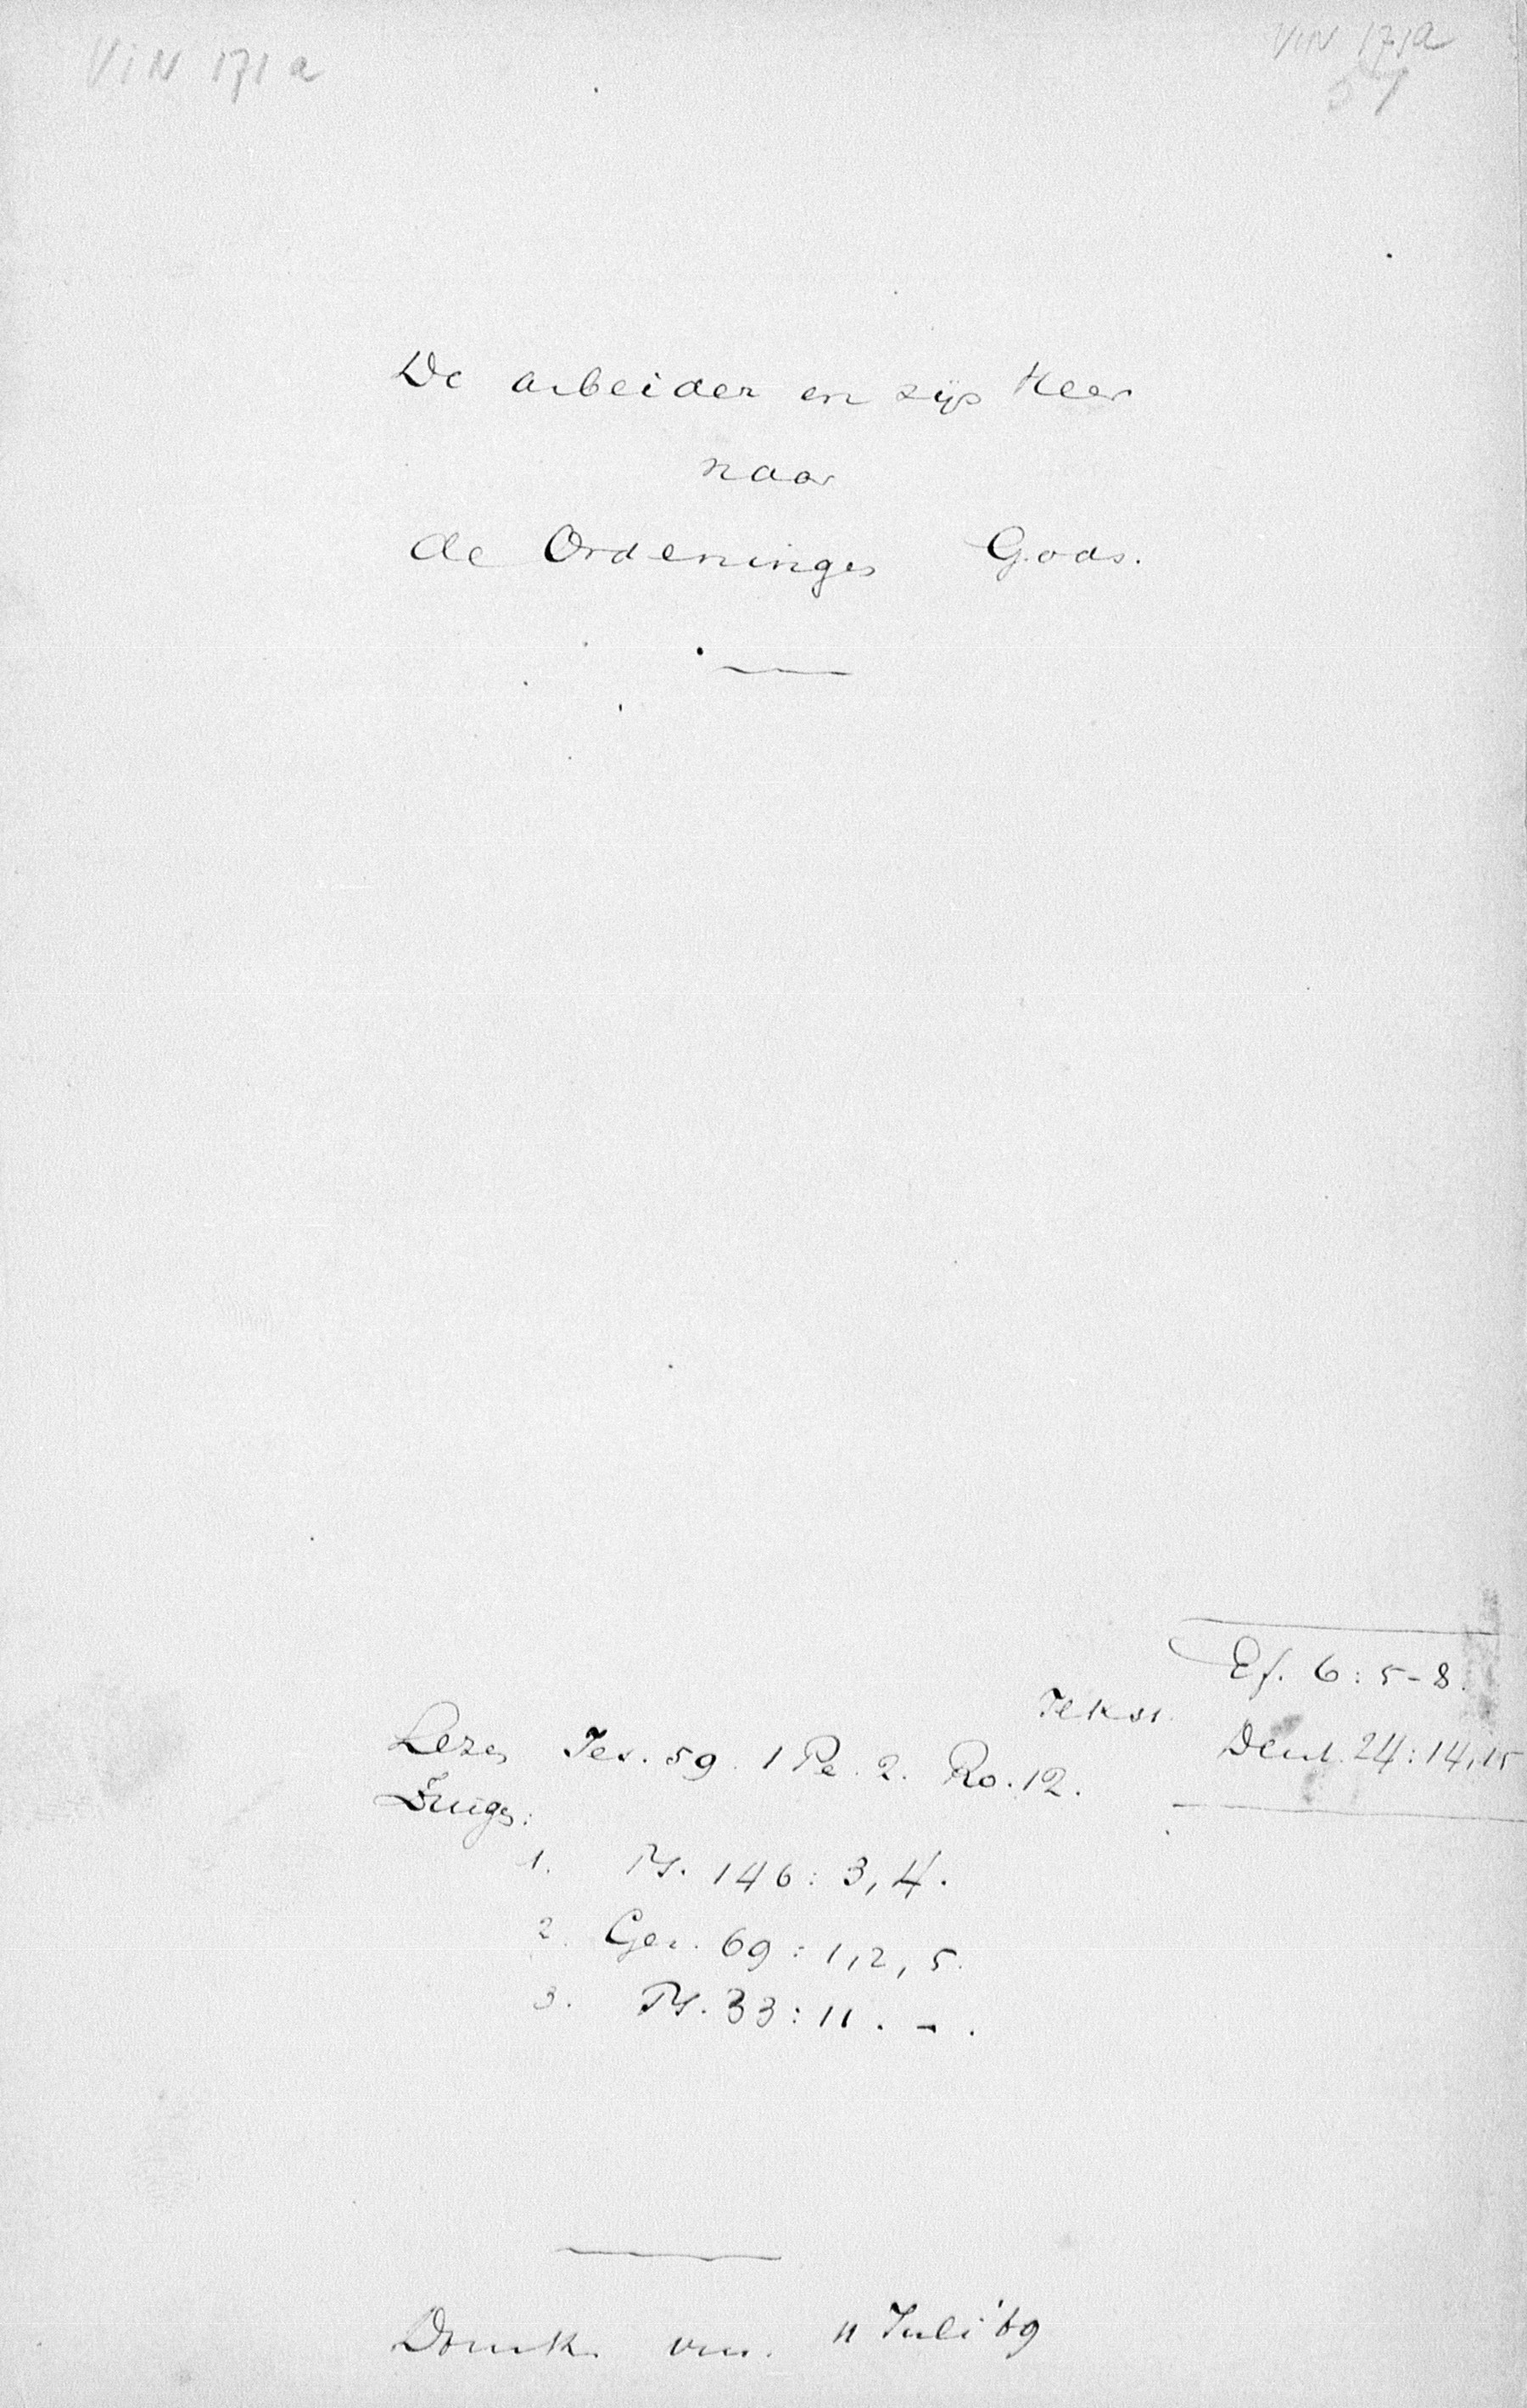 VIN 171a
VIN 171a
57
De arbeider en zijn Heer
naar
de Ordeningen Gods.
Ef. 6:5-8.
Tekst.
Deut. 24:14,15
Lezen Jes. 59. 1 Pe. 2. Ro. 12.
Zingen:
1. Ps. 146: 3, 4.
2. Gez. 69: 1, 2, 5.
3. Ps. 33: 11. - .
Domk. vm. 11 Juli '69